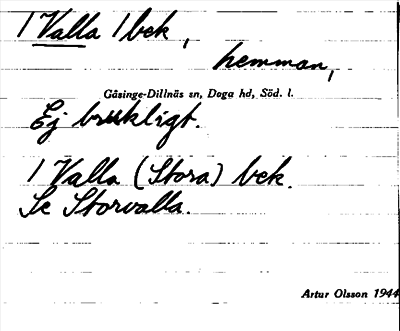 1 Valla 1 bek,
hemman,
Gåsinge-Dillnäs sn, Daga hd, Söd. l.
Ej brukligt.
1 Valla (Stora) bek.
Se Storvalla.
Artur Olsson 1944